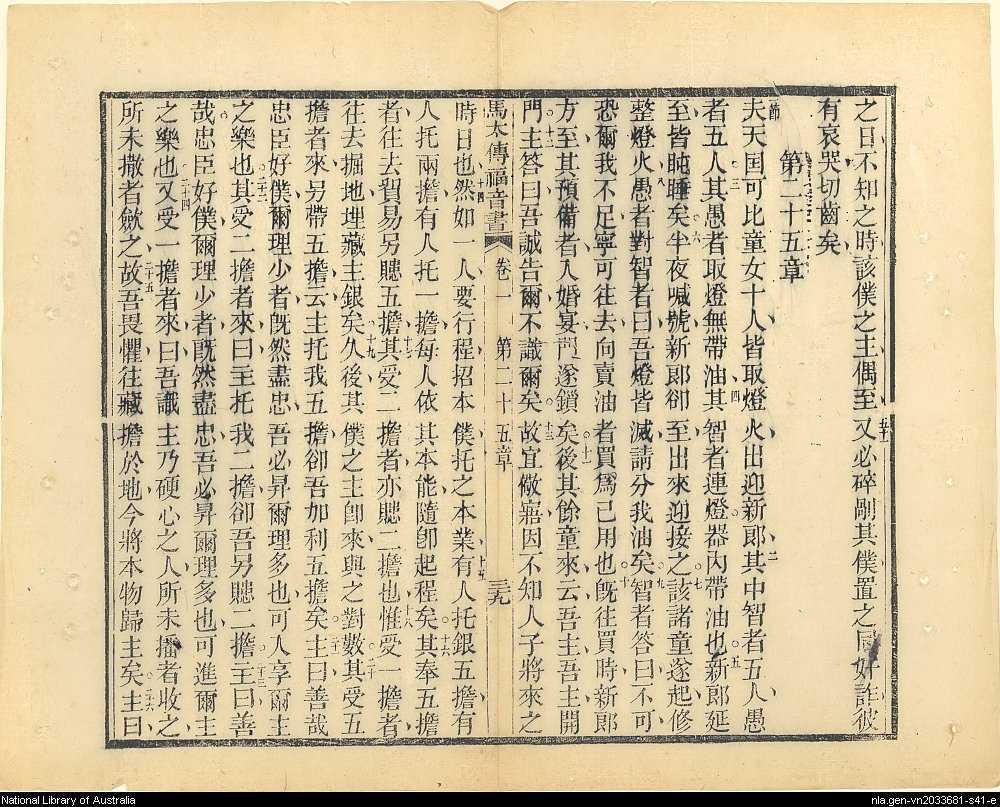 之日不知之時該僕之主偶至五十一又必碎剮其僕置之同奸詐彼
有哀哭切齒矣
第二十五章
節夫天国可比童女十人皆取燈火出迎新郎二其中智者五人愚
者五人三其愚者取燈無帶油四其智者連燈器內帶油也五新郎延
至皆盹睡矣六半夜喊號新郎卻至出來迎接之七該諸童遂起修
整燈火八愚者對智者曰吾燈皆滅請分我油矣九智者答曰不可
恐爾我不足寧可往去向賣油者買爲己用也十旣往買時新郎
方至其預備者入婚宴門遂鎖矣十一後其餘童來云吾主吾主開
門十二主答曰吾誠告爾不識爾矣十三故宜儆寤因不知人子將來之
馬太傳福音書 卷一 第二十五章 三九
時日也十四然如一人要行程招本僕托之本業十五有人托銀五擔有
人托兩擔有人托一擔每人依其本能隨卽起程矣十六其奉五擔
者往去貿易另賺五擔十七其受二擔者亦賺二擔也十八惟受一擔者
往去掘地埋藏主銀矣十九久後其僕之主卽來與之對數二十其受五
擔者來另帶五擔云主托我五擔卻吾加利五擔矣二十一主曰善哉
忠臣好僕爾理少者旣然盡忠吾必昇爾理多也可人享爾主
之樂也二十二其受二擔者來曰主托我二擔卻吾另賺二擔二十三主曰善
哉忠臣好僕爾理少者旣然盡忠吾必昇爾理多也可進爾主
之樂也二十四又受一擔者來曰吾識主乃硬心之人所未播者收之
所未撒者斂之二十五故吾畏懼往藏擔於地今將本物歸主矣二十六主曰
National Library of Australia
nla.gen-vn2033681-s41-e